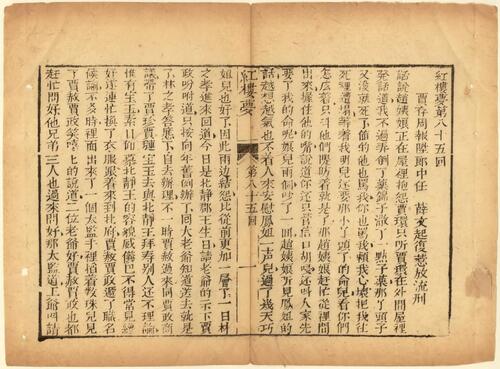 紅樓夢第八十五回
賈存周報陞郎中任 薛文起復惹放流刑
話說趙姨娘正在屋裡抱怨賈環只听賈環在外間屋裡
發話道我不過弄倒了藥銱子潵了一點子藥那丫頭子
又沒就死了値的他也罵我你也罵我賴我心壞把我往
死裡遭塌等着我明兒還要那小丫頭子的命呢看你們
怎麽着只叫他們隄防着就是了那趙姨娘赶忙從裡間
出來握住他的嘴說道你還只管信口胡唚還叫人家先
要了我的命呢娘兒兩個吵了一回趙姨娘听見鳳姐的
話越想越氣也不着人來安慰鳳姐一声兒過了幾天巧
紅樓夢 第八十五回 一
姐兒也好了因此兩邊結怨比從前更加一層了一日林
之孝進來回道今日是北靜郡王生日請老爺的示下賈
政吩咐道只按向年舊例辦了回大老爺知道送去就是
了林之孝答應了自去辦理不一時賈赦過來同賈政商
議帶了賈珍賈璉寶玉去與北靜王拜壽別人还不理論
惟有寶玉素日仰慕北靜王的容貌威儀巴不得常見纔
好遂連忙換了衣服跟着來到北府賈赦賈政遞了職名
候諭不多時裡面出來了一個太監手裡掐着数珠兒見
了賈赦賈政笑嘻嘻的說道二位老爺好賈赦賈政也都
赶忙問好他兄弟三人也過來問好那太監道王爺叫請